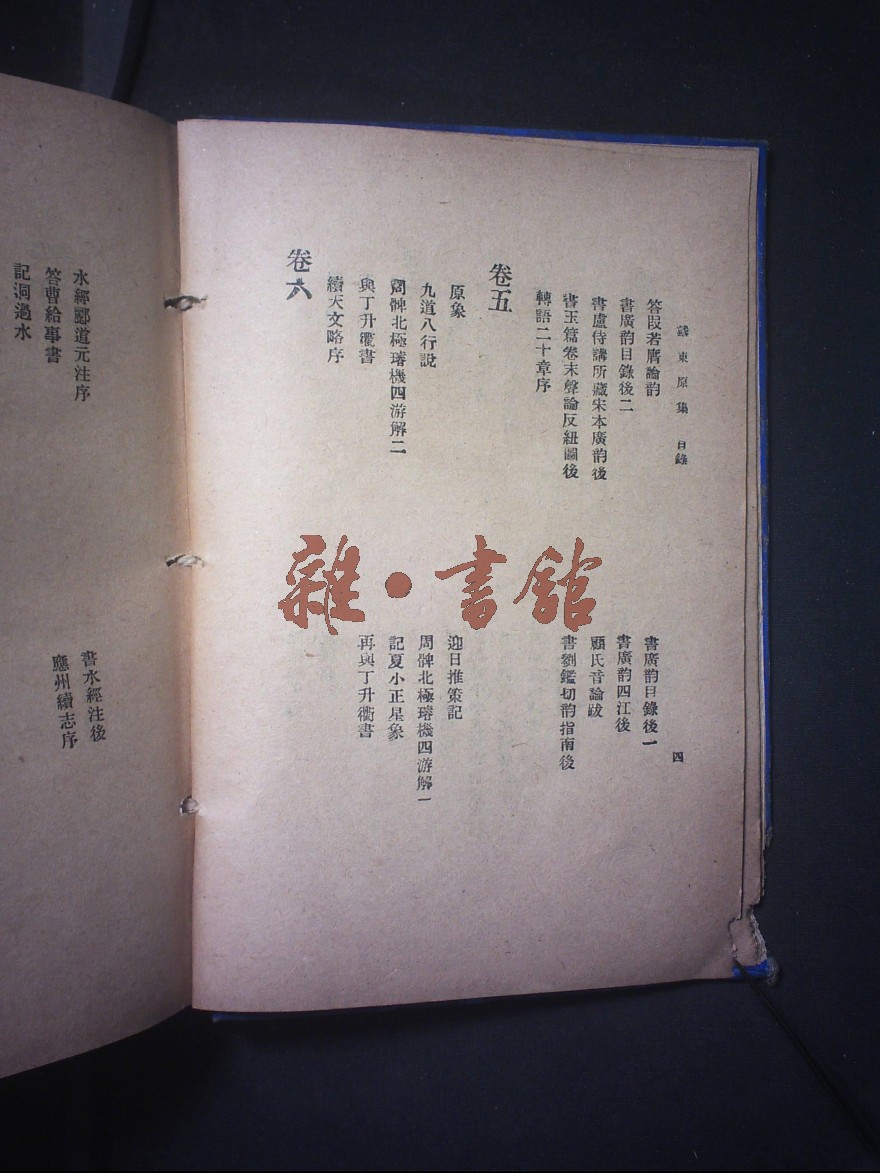 戴東原集 目錄 四
答段若膺論韵 書廣韵目錄後一
書廣韵目錄後二 書廣韵四江後
書盧侍講所藏宋本廣韵後 顧氏音論跋
書玉篇卷末聲論反紐圖後 書劉鑑切韵指南後
轉語二十章序
卷五
原象 迎日推策記
九道八行說 周髀北極璿機四游解一
周髀北極璿機四游解二 記夏小正星象
與丁升衢書 再與丁升衢書
續天文略序
卷六
水經酈道元注序 書水經注後
答曹給事書 應州續志序
記洞過水
雜·書館